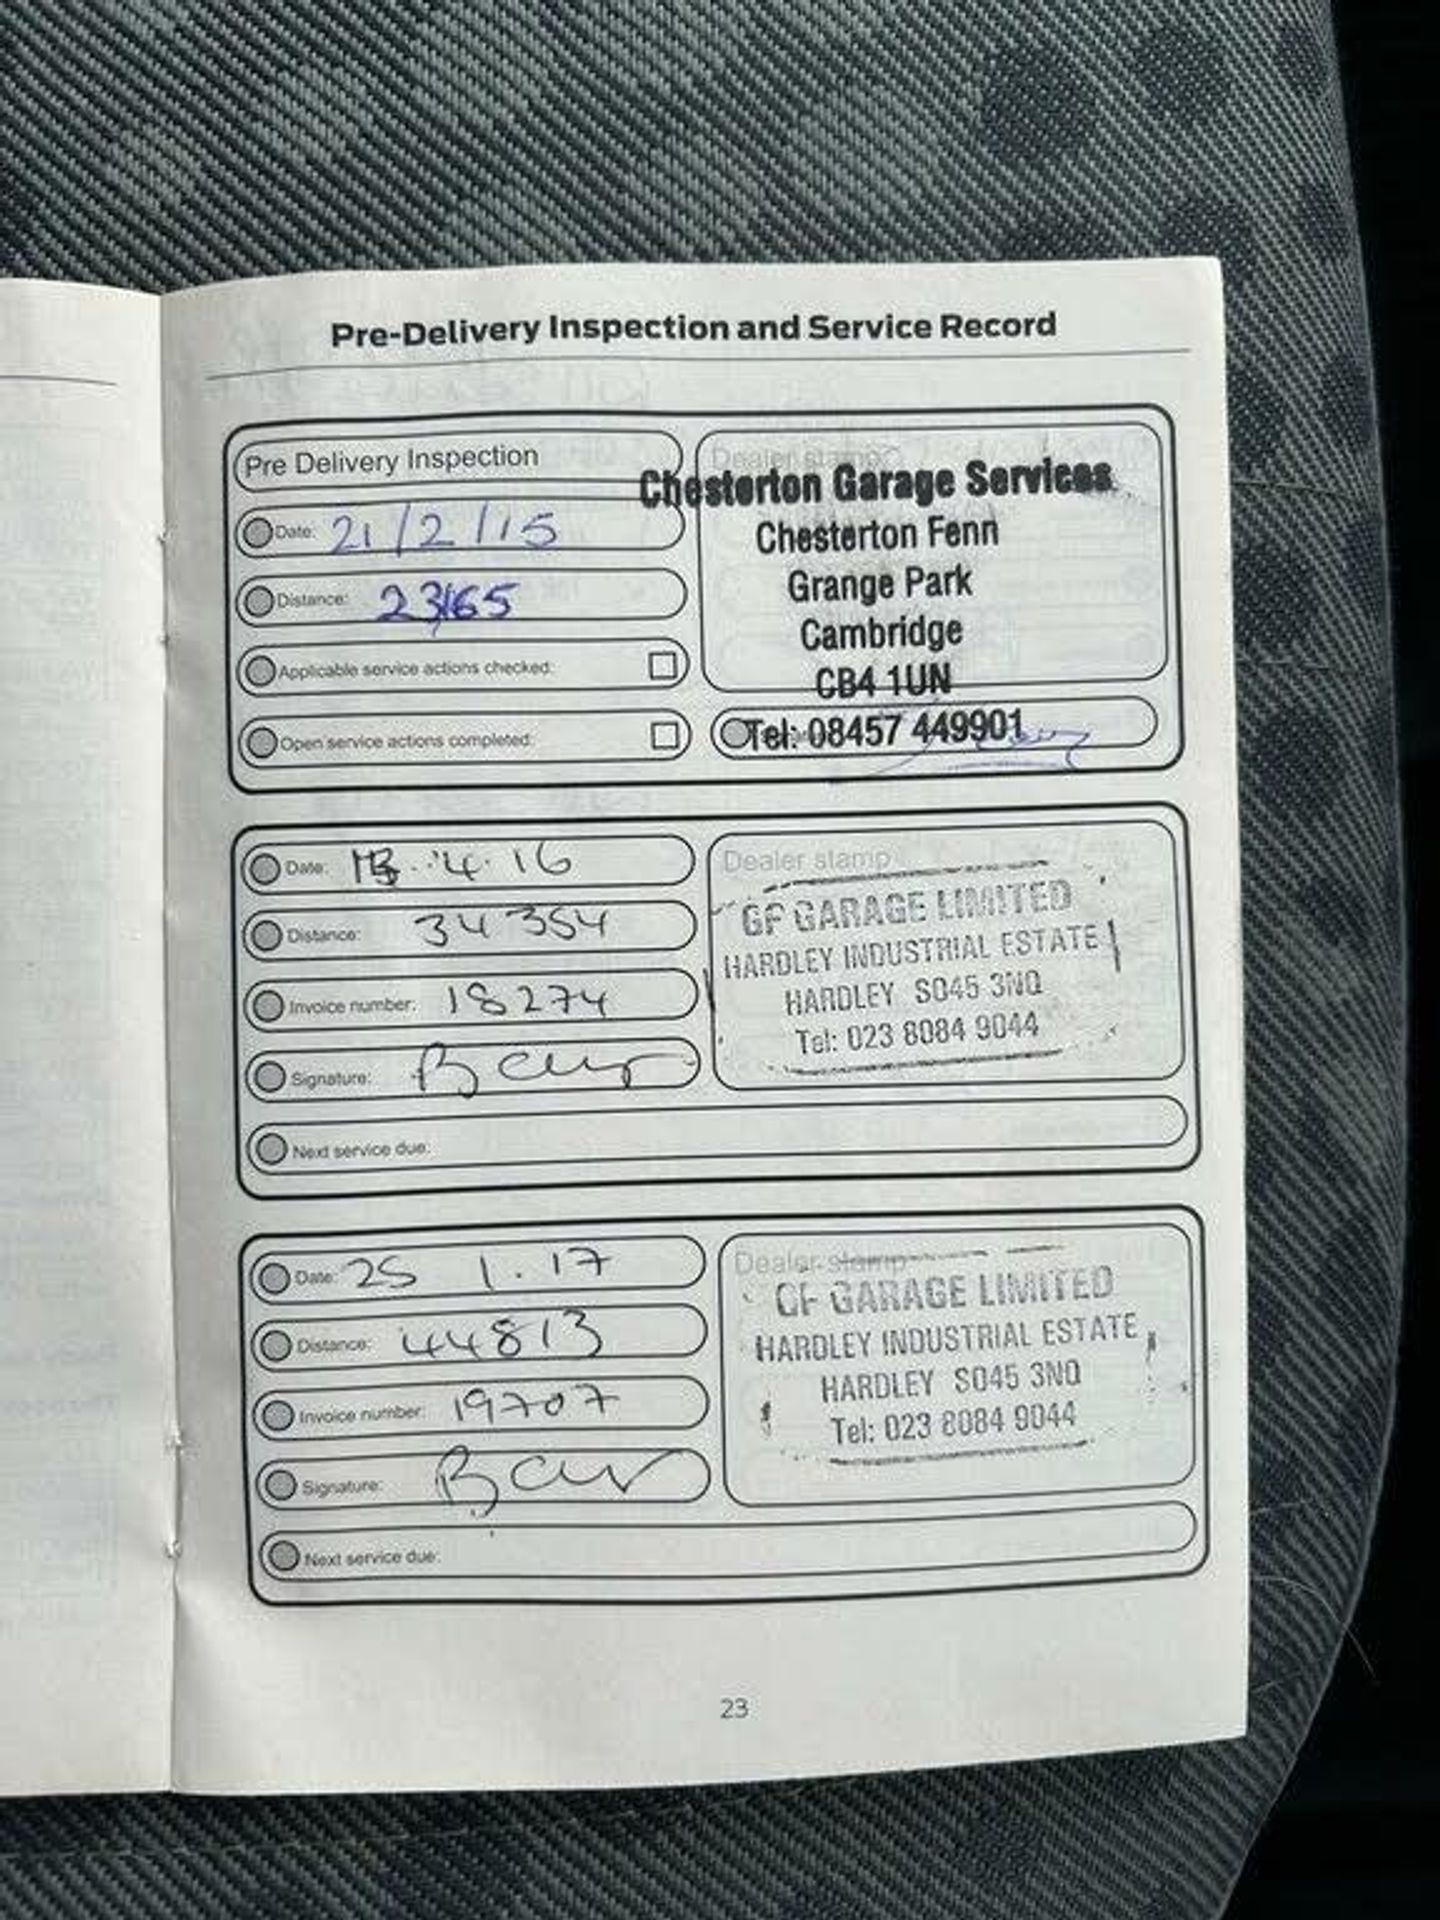 Pre-Delivery Inspection and Service Record
Pre Delivery Inspection
Dealer stamp
Date: 21/2/15
Distance: 23165
Applicable service actions checked:
Open service actions completed:
Chesterton Garage Services
Chesterton Fenn
Grange Park
Cambridge
CB4 1UN
Tel: 08457 449901
Date: 4.16
Distance: 34354
Invoice number: 18274
Signature:
Next service due:
Dealer stamp
GF GARAGE LIMITED
HARDLEY INDUSTRIAL ESTATE
HARDLEY SO45 3NQ
Tel: 023 8084 9044
Date: 25 1.17
Distance: 44813
Invoice number: 19707
Signature:
Next service due:
Dealer stamp
GF GARAGE LIMITED
HARDLEY INDUSTRIAL ESTATE
HARDLEY SO45 3NQ
Tel: 023 8084 9044
23